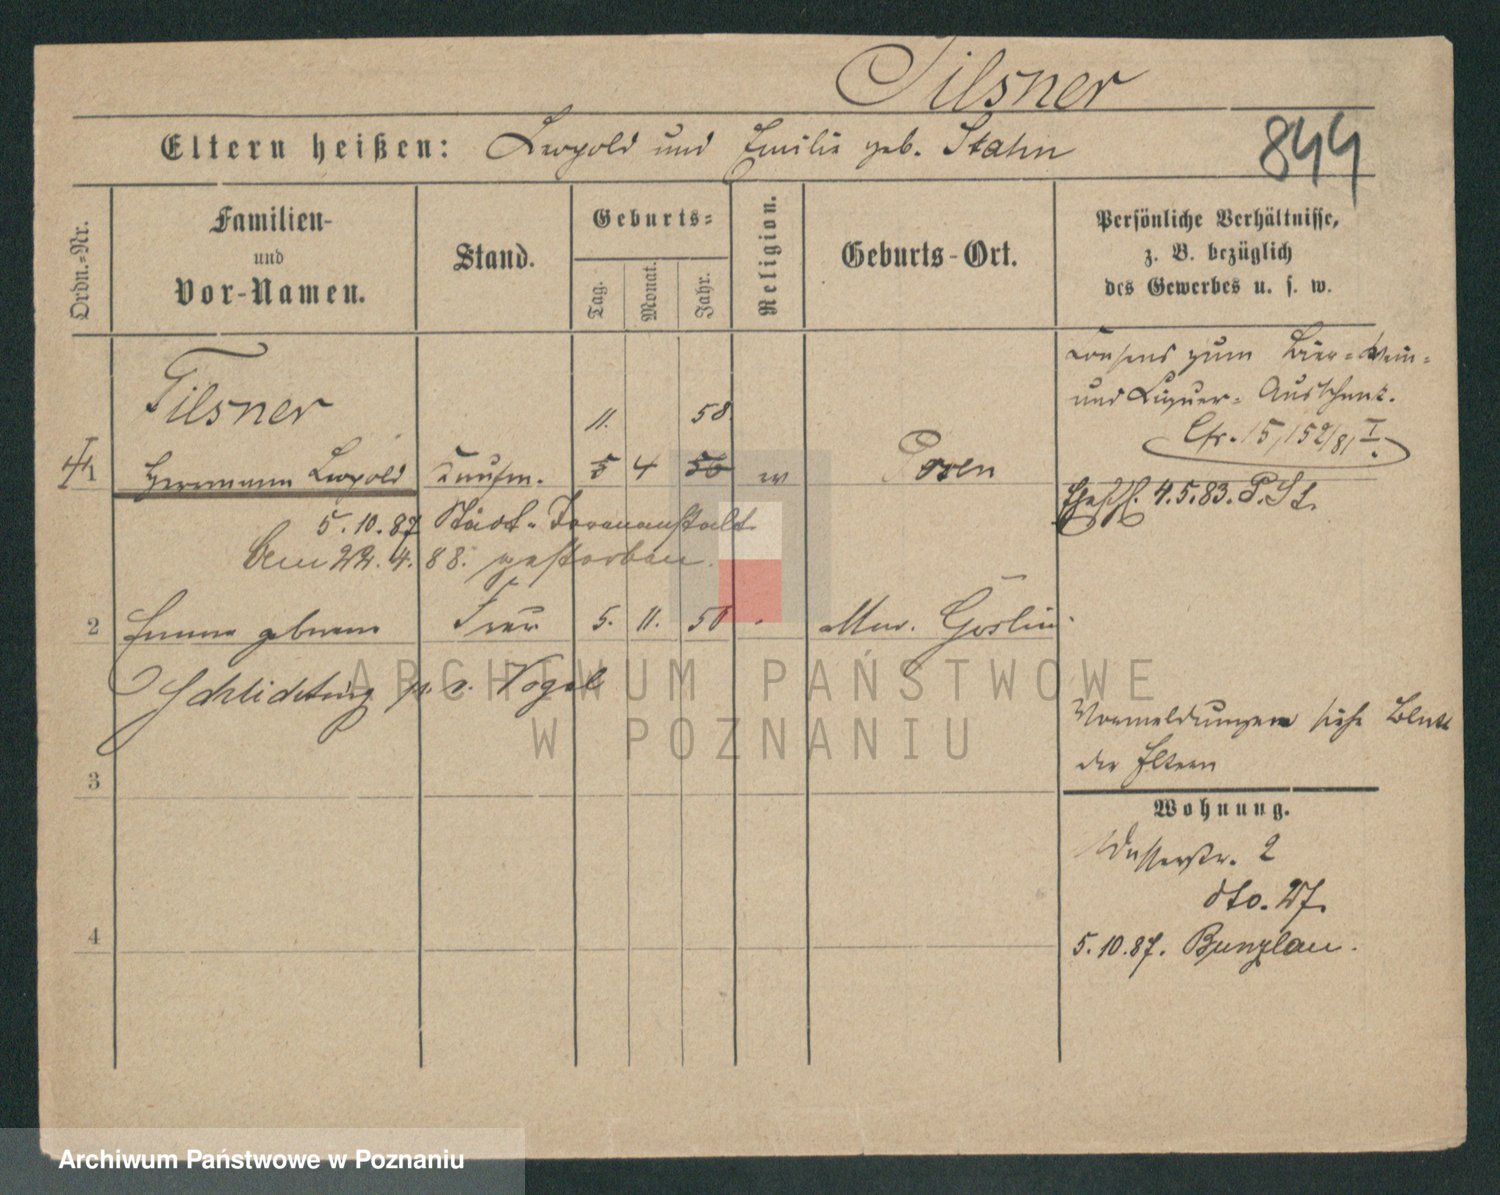 Tilsner
Eltern heißen: Leopold und Emilie geb. Stahn
844
Ordn.-Nr.
Familien-
und
Vor-Namen.
Stand.
Geburts-
Tag.
Monat.
Jahr.
Religion.
Geburts-Ort.
Persönliche Verhältnisse,
z. B. bezüglich
des Gewerbes u. s. w.
Consens zum Bier-Wein-
und Liquer-Ausschank.
Cfr. 15,152/81 I.
Tilsner
11. 58.
Herrmann Leopold Kaufm. 5 4 56 Posen
4.5.83. P.
5.10.87 Städt. Irrenanstalt
Am 22.4.88. gestorben.
2 Emma geborene Frau 5. 11. Mur. Goslin.
Schlichting v. Vogel
Vormeldungen siehe Blatt
der Eltern
3
Wohnung.
Wasserstr. 2
dto. 27.
4
5.10.87. Bunzlau.
ARCHIWUM PAŃSTWOWE
W POZNANIU
Archiwum Państwowe w Poznaniu